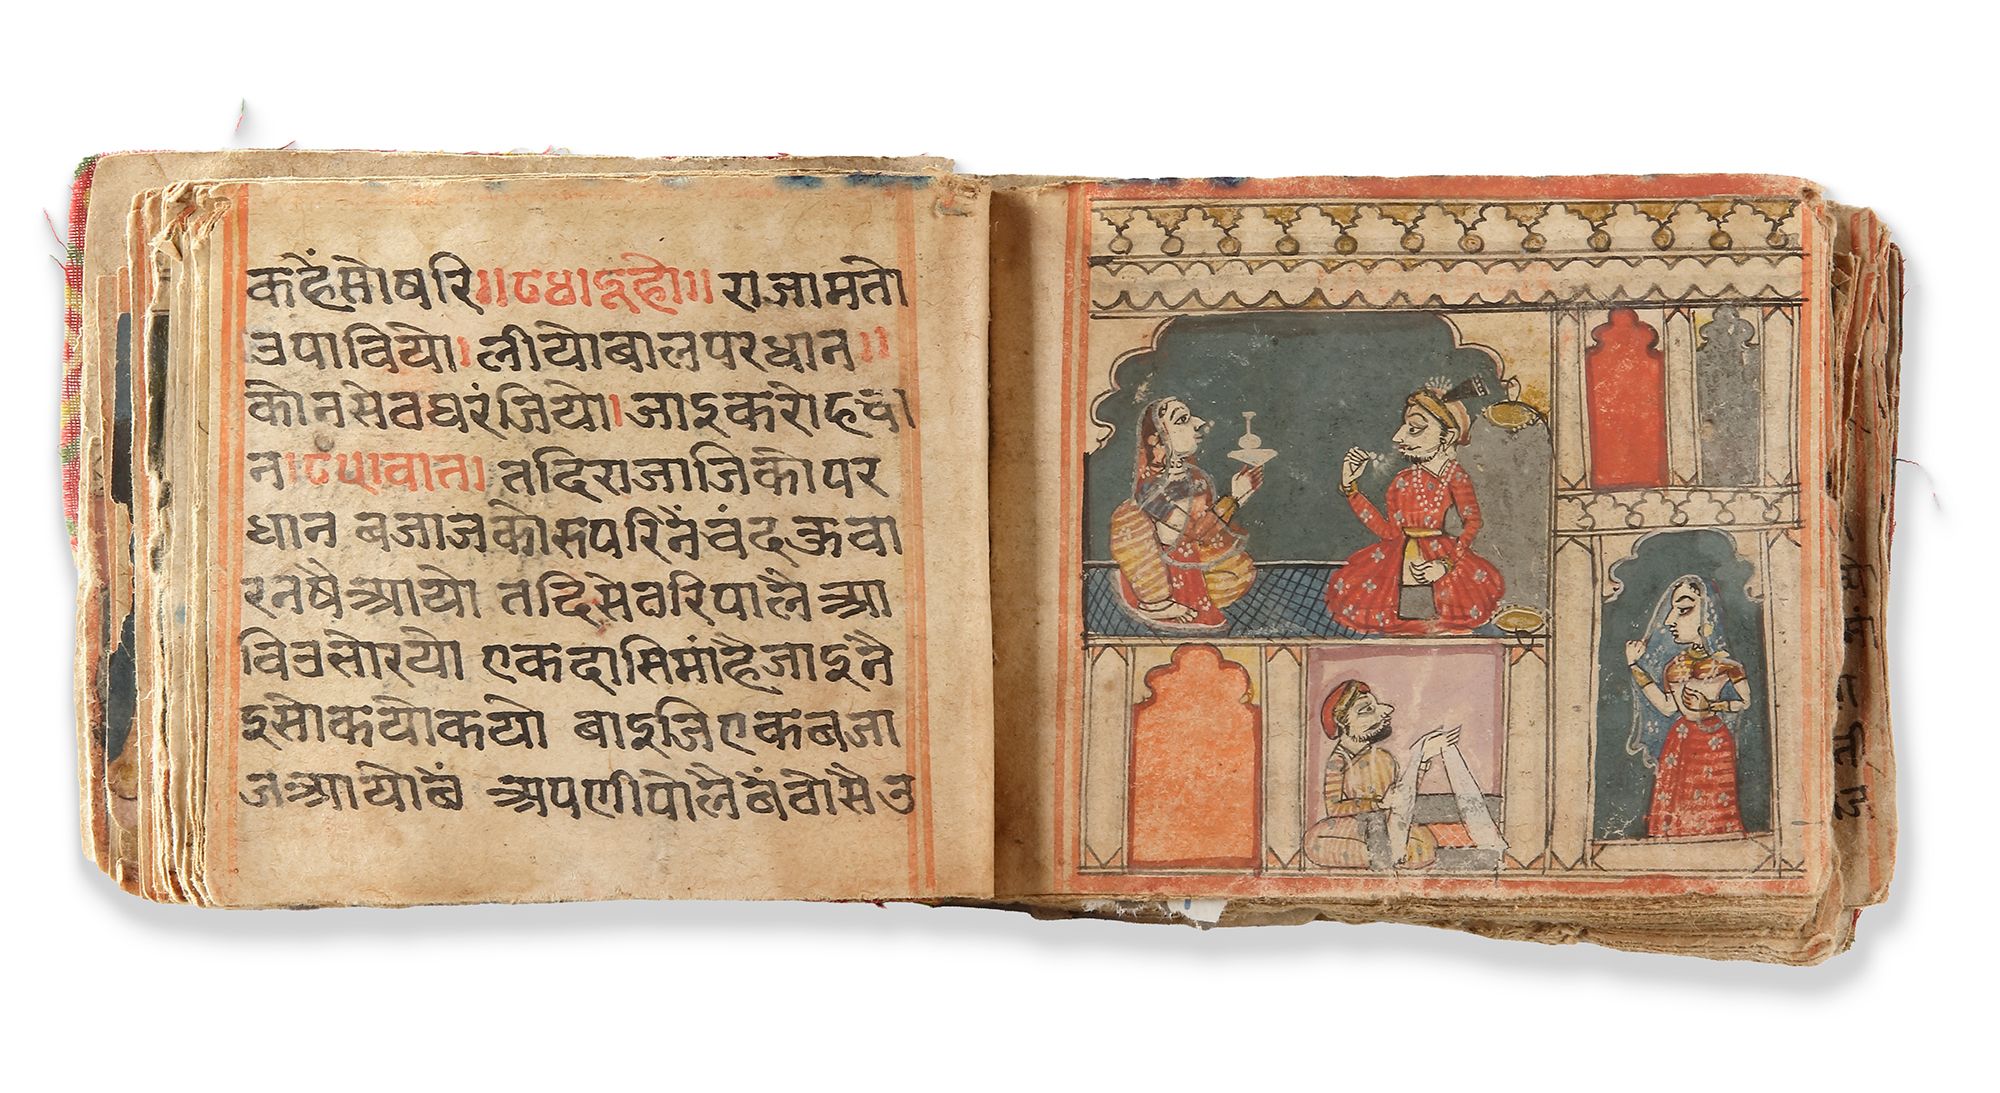 कहैंसोषरि॥८४।दूहो॥ राजामतो
उपावियो।लीयोबालपरधान॥
कोनसेवघरंजियो।जाइकरोहवा
न।८५।वात। तदिराजाजिकोपर
धान बजाजकोरुपरिनैंवंदकवा
रनषैआयो तदिसेवरिपालैआ
विउसोरयो एकदासिमांहैजाइनै
इसोकयोकयो बाइजिएकबजा
जआयोबैं अपणीपोलैबैंवोसैउ